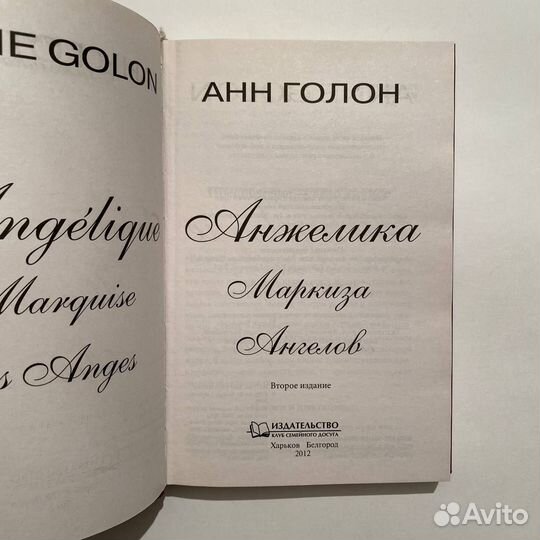 NE GOLON
Angélique
Marquise
s Anges
АНН ГОЛОН
Анжелика
Маркиза
Ангелов
Второе издание
ИЗДАТЕЛЬСТВО
КЛУБ СЕМЕЙНОГО ДОСУГА
Харьков Белгород
2012
Avito